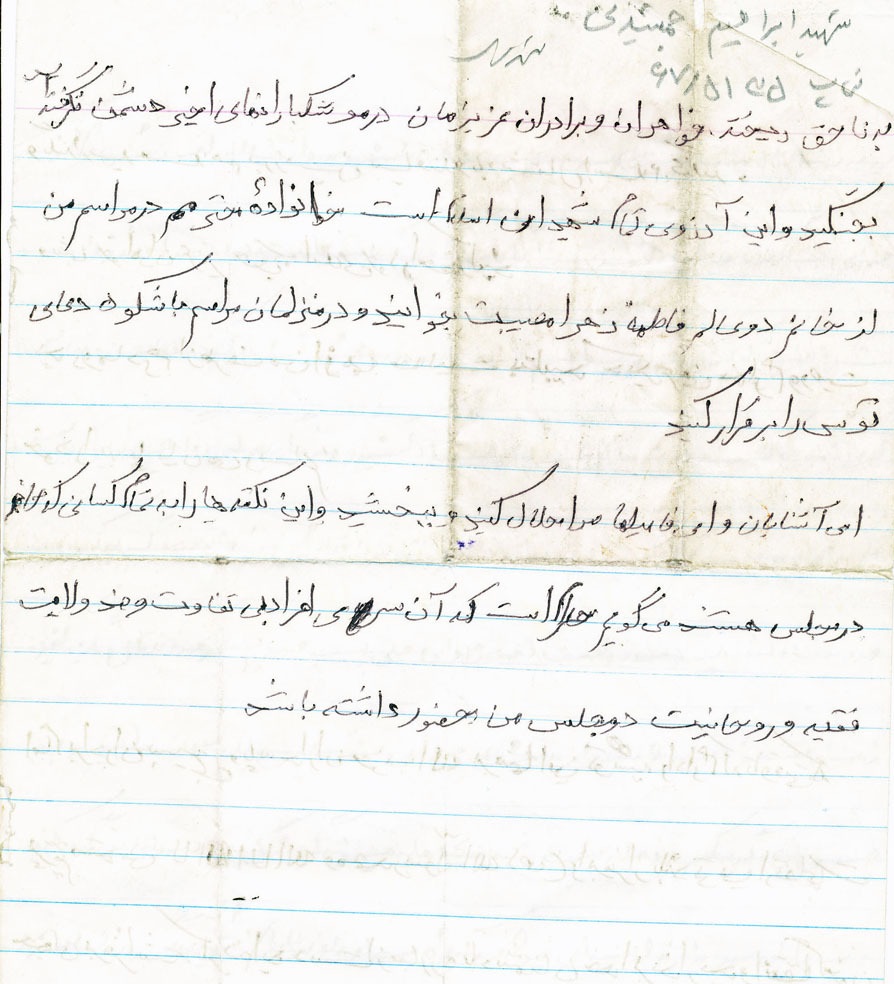 شهید ابراهیم جمشیدی
به ناحق ریختند. خواهران و برادران عزیزمان در موشکبارانهای اخیر دشمن
بجنگید و این آرزوی تمام شهیدان اسلام است خانوادهٔ محترمم در مراسم من
از خانم دو عالم فاطمهٔ زهرا مصیبت بخوانید و در منزلمان مراسم باشکوه دعای
توسل را برقرار کنید
ای آشنایان و ای فامیلها مرا حلال کنید و ببخشید و این نکته ها را به تمام کسانی که حاضر
در مجلس هستند می گویم است که آن سری افراد بی تفاوت و ضد ولایت
فقیه و روحانیت در مجلس من حضور داشته باشد